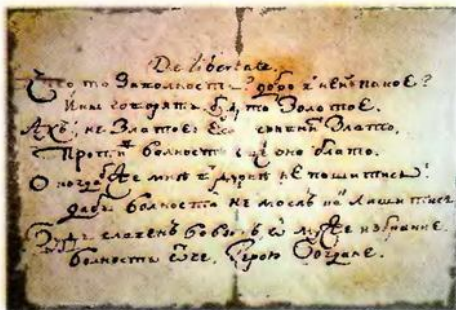 De libertate.
Что то за волность? добро в ней какое?
Ины говорятъ, будто золотое.
Ахъ, не златое: если сравнить злато,
Против волности еще оно блато.
О когда бы же мнѣ в дурнѣ не пошитись!
дабы волности не моглъ как лишитись
Будь славенъ вовѣкъ, ѿ муже избранне.
волности ѿче, Герою Богдане.